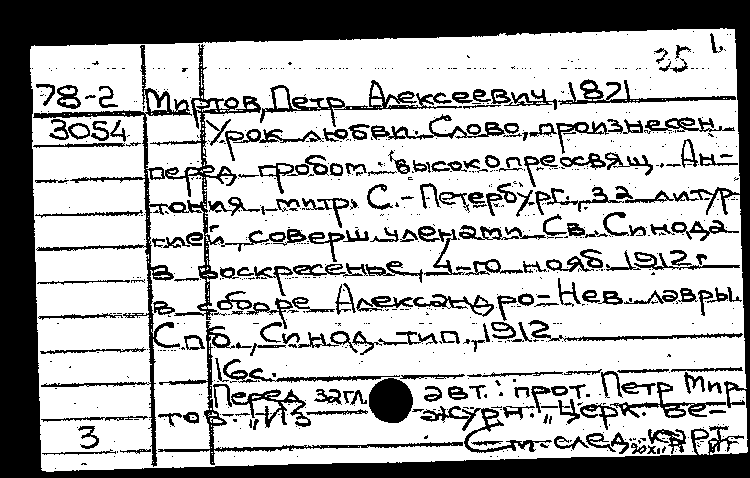 35 1.
78-2 Миртов, Петр Алексеевич, 1871
3054 Урок любви. Слово, произнесен.
перед гробом высокопреосвящ. Ан-
тония, митр. С.-Петербург., за литур-
гией, соверш. членами Св. Синода
в воскресенье, 4-го нояб. 1912 г
в соборе Александро-Нев. лавры.
Спб., Синод. тип., 1912.
16с.
Перед загл. авт.: прот. Петр Мир
тов. "Из журн. "Церк. ве-
3 См. след. карт.